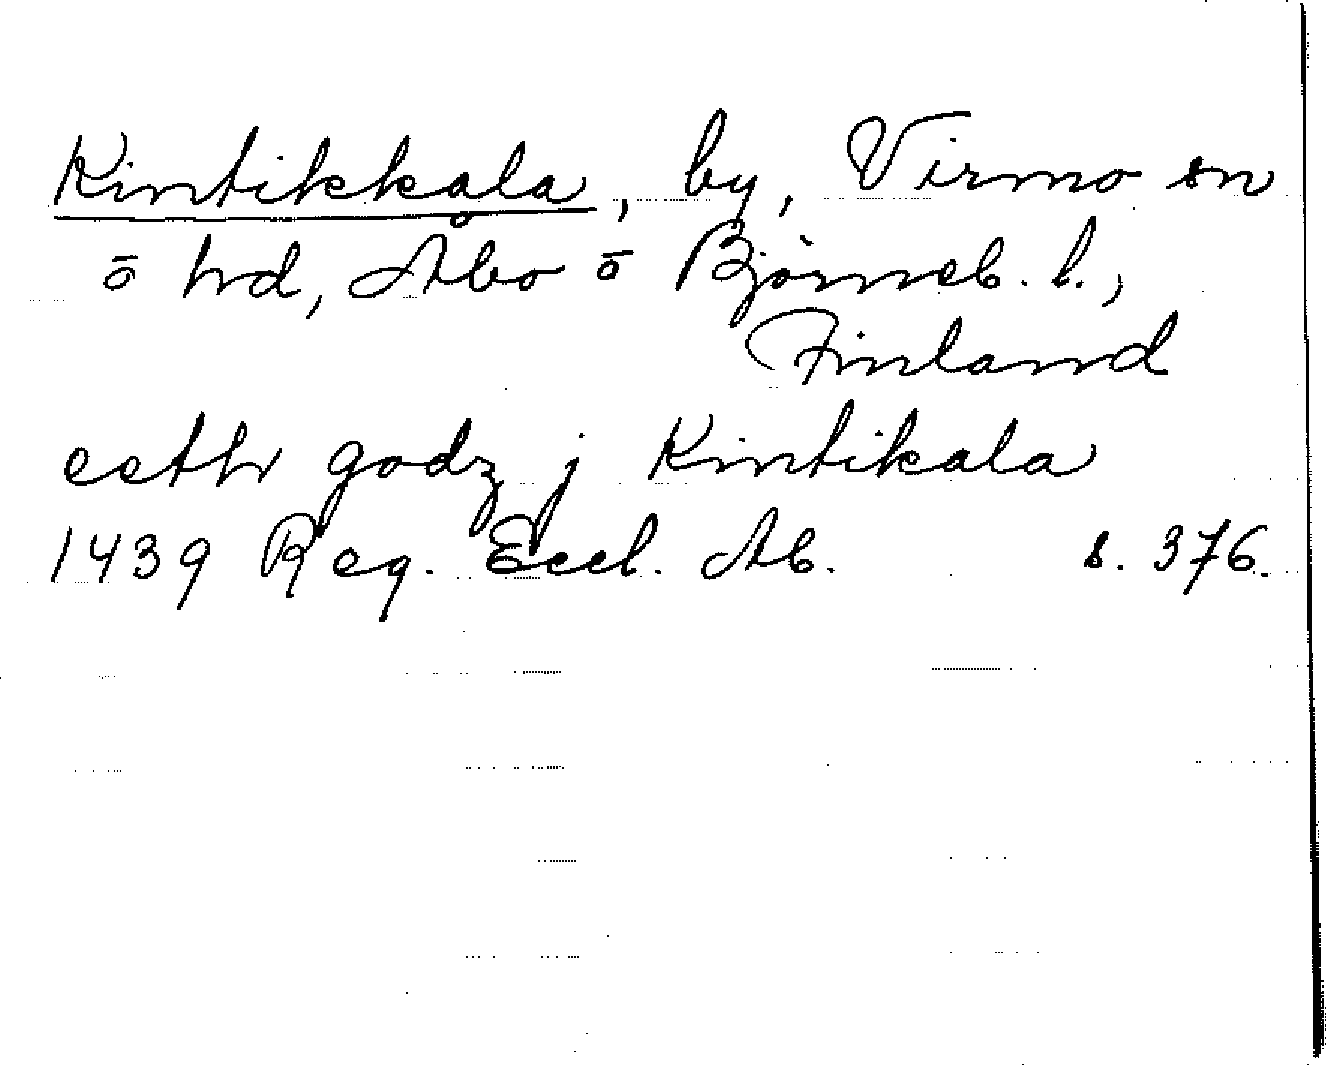 Kintikkala, by, Virmo sn
o hd, Åbo o Björneb. l.,
Finland
eetth godz j Kintikala
1439 Reg. Eccl. Ab. s. 376.